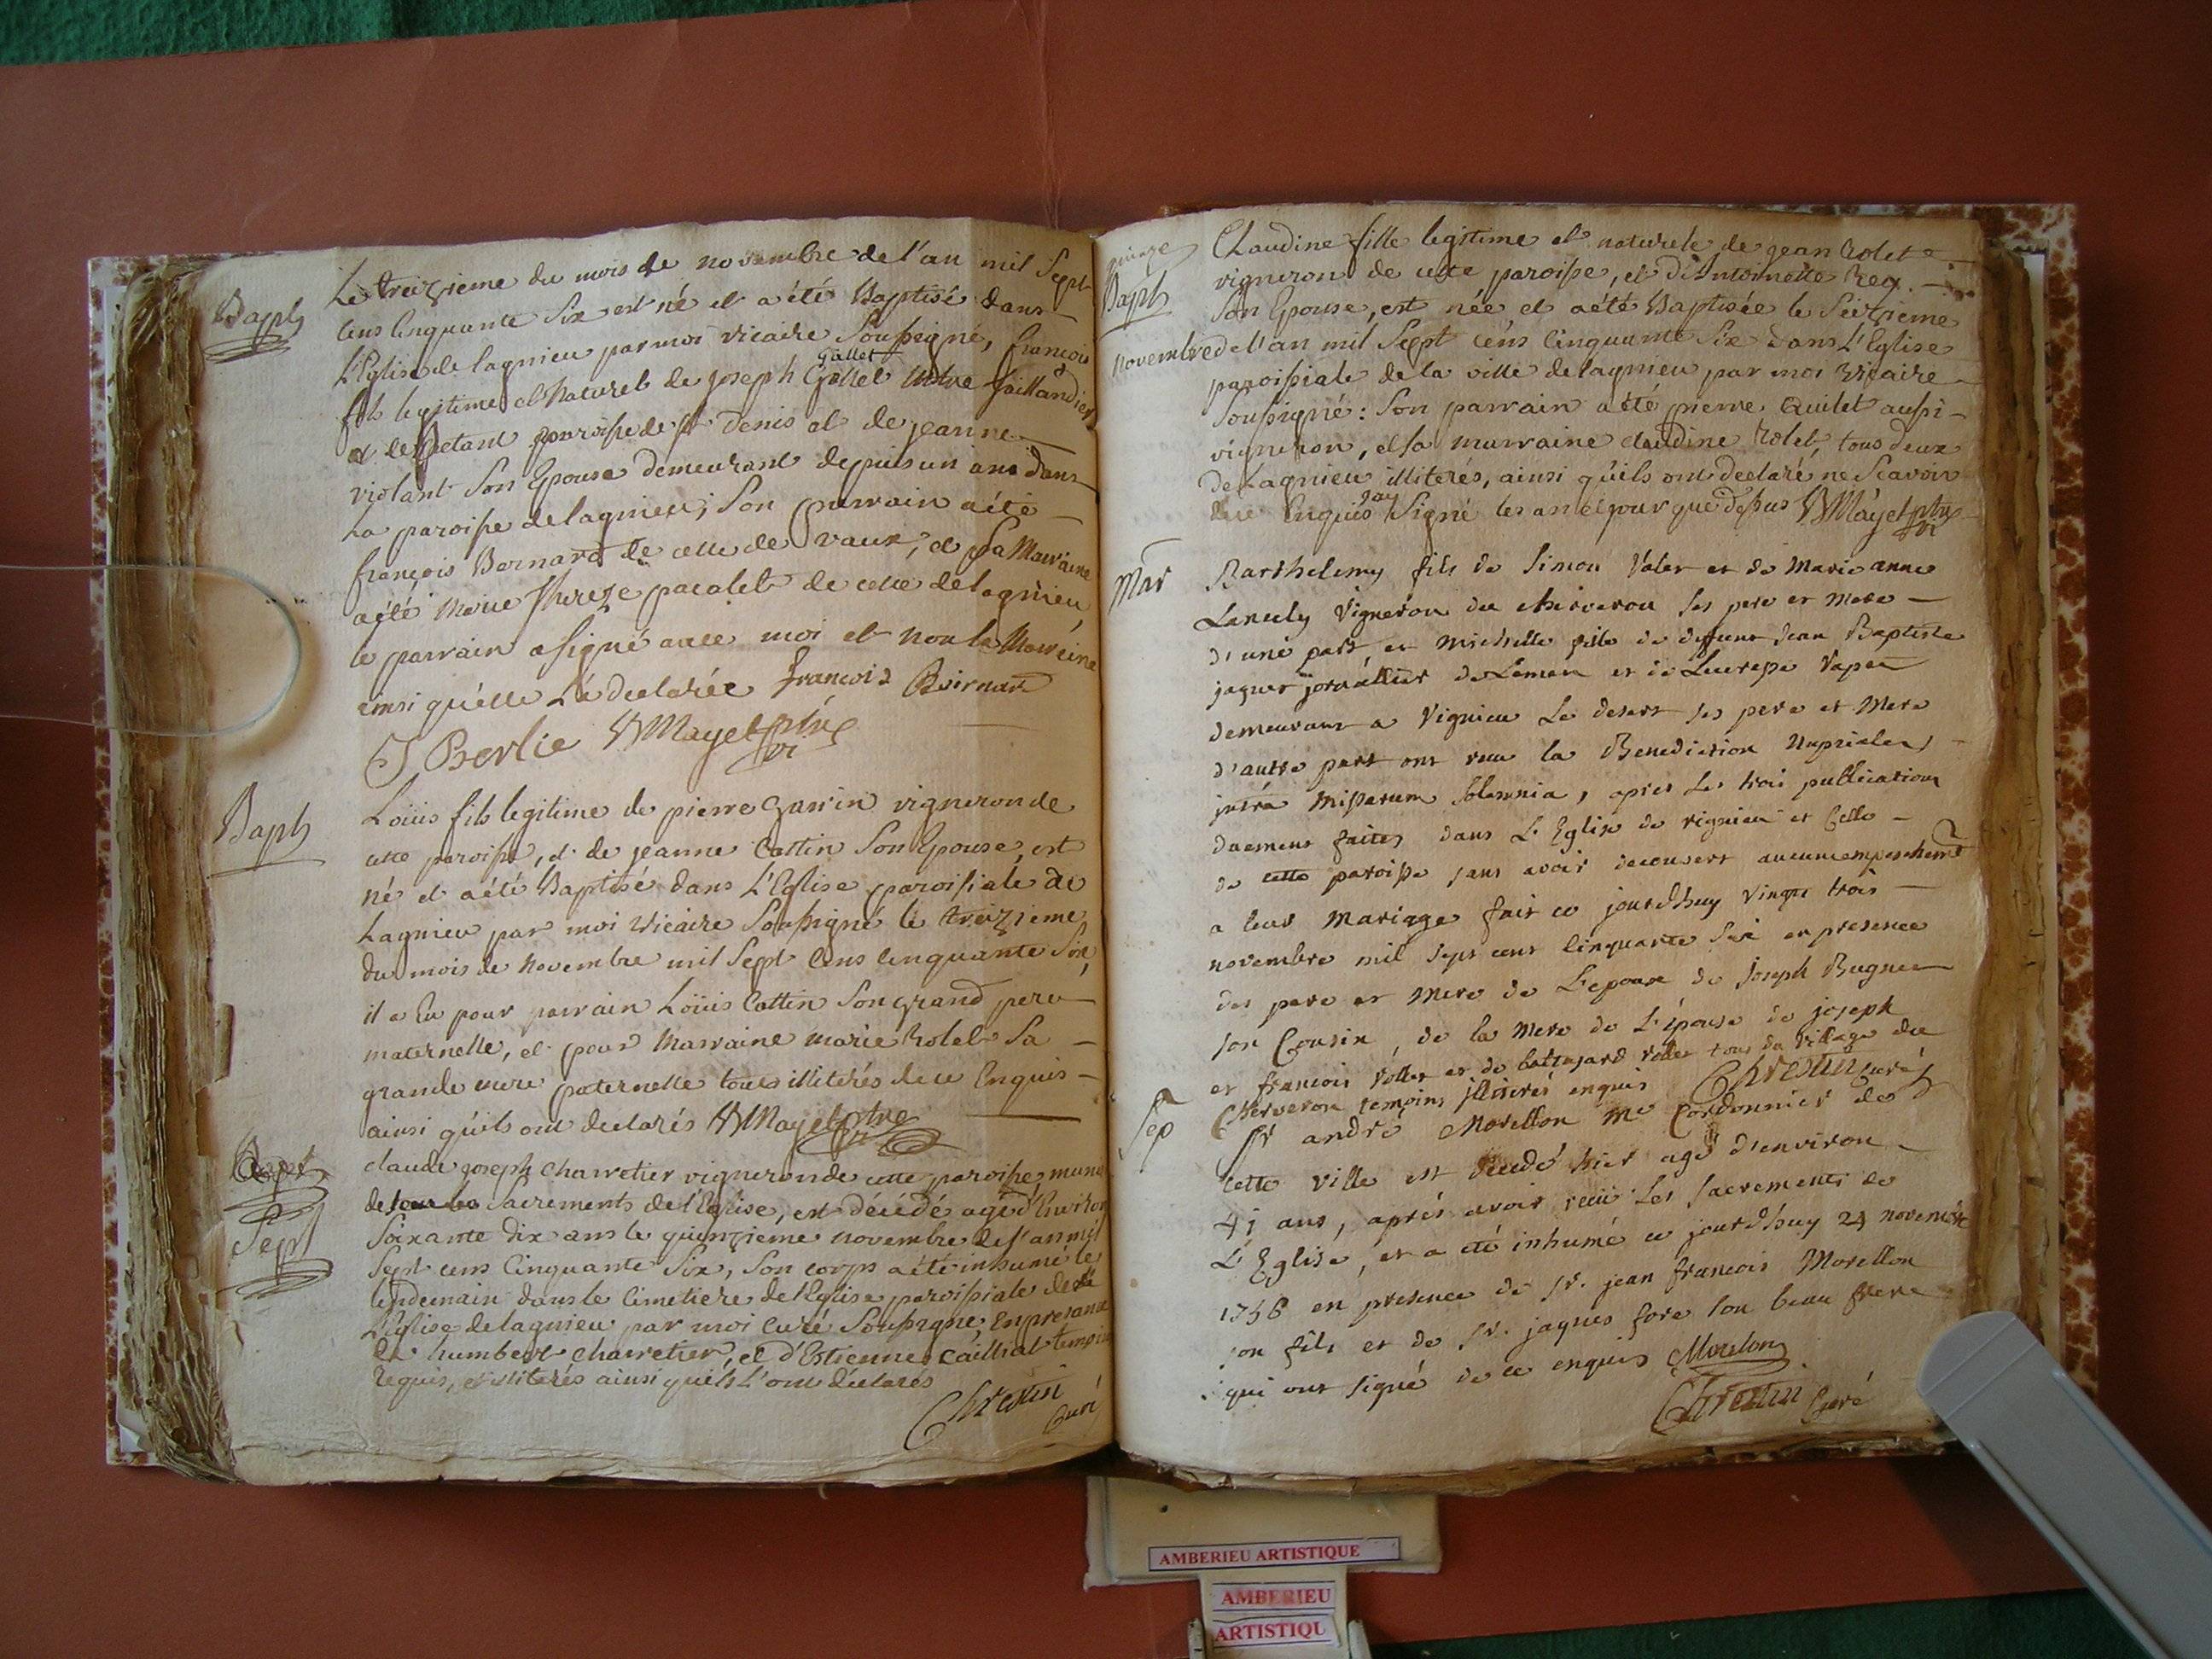 Bapt
Le treizieme du mois de novembre de l'an mil Sept
Cens Cinquante Six est né et a été Baptisé dans
L'Eglise de lagnieu par moi vicaire Soussigné, françois
Gallet
fils legitime et Naturel de joseph Gallet Mtre taillandier
paroisse de St Denis et de jeanne
violant Son Epouse demeurant depuis un ans dans
La paroisse de lagnieu; Son parrain a été
françois Bernard de celle de vaux, et sa Marraine
a été Marie thereze pacalet de celle de lagnieu,
le parrain a signé avec moi et non la Marreine
ainsi qu'elle L'a declarée francois Beirnard
J Berlie Mayet ptre vi
Bapt
Loüis fils legitime de pierre Garrin vigneron de
cette paroisse, et de jeanne Cottin Son Epouse, est
né et a été Baptisé dans L'Eglise paroissiale de
Lagnieu par moi vicaire Soussigné le treizieme
du mois de novembre mil Sept Cens Cinquante Six,
il a Eu pour parrain Loüis Cottin Son grand pere
maternelle, et pour Marraine marie Rolet Sa
grande mere paternelle tous illiterés de ce Enquis
ainsi qu'ils ont declarés Mayet ptre
Bapt
Sept
claude joseph charretier vigneron de cette paroisse muni
de tous les Sacrements de l'Eglise, est décédé agé d'Environ
Soixante dix ans le quinzieme novembre de l'an mil
Sept cens Cinquante Six, Son corps a été inhumé le
lendemain dans le Cimetiere de l'Eglise paroissiale de
L'Eglise de lagnieu par moi Curé Soussigné, En presance
de humbert charretier, et d'Estienne Cailliat temoins
Requis, et illiterés ainsi qu'ils L'ont declarés
Chrétin Curé
Bapt
Claudine fille legitime et naturele de jean Rolet
vigneron de cette paroisse, et d'Antoinette Rey.
Son Epouse, est née et a été Baptisée le Seizieme
novembre de l'an mil Sept cens Cinquante Six dans L'Eglise
paroissiale de la ville de lagnieu par moi vicaire
Soussigné: Son parrain a été pierre Quilet aussi
vigneron, et sa marraine claudine Rolet, tous deux
de Lagnieu illiterés, ainsi qu'ils ont declaré ne Scavoir
de ce Enquis j'ay Signé les an et jour que dessus Mayet ptre vi
Mar
Barthelemy fils de Simon Volet et de Marie anne
Lancely Vigneron du cherveron ses pere et Mere
d'une part et Michelle fille de deffunt Jean Baptiste
jaques jornallier de Leman et de Lucresse Vapet
demeurant a Vignieu Le desert ses pere et Mere
d'autre part ont recu la Benediction Nuptiales,
intra Missarum Solemnia, apres Les trois publications
duement faites dans L'Eglise de vignieu et Celle
de cette paroisse sans avoir decouvert aucun empeschement
a leur Mariage fait ce jourdhuy Vingt trois
novembre mil sept cent cinquante Six en presence
des pere et Mere de L'epoux de joseph Bugnet
son Cousin, de la Mere de L'épouse de joseph
et francois vollet et de vollet tous du village du
Cherveron temoins illiterés enquis Chrétin Curé
Sep
Sr andré Morellon me Cordonnier de
cette ville est decedé hier agé d'environ
45 ans, aprés avoir reçu Les sacrements de
L'Eglise, et a eté inhumé ce jourdhuy 24 novembre
1756 en presence de Sr. jean francois Morellon
son fils et de Sr. jaques fore son beau frere
qui ont signé de ce enquis Morelon
Chrétin Curé
AMBERIEU ARTISTIQUE
AMBERIEU
ARTISTIQU